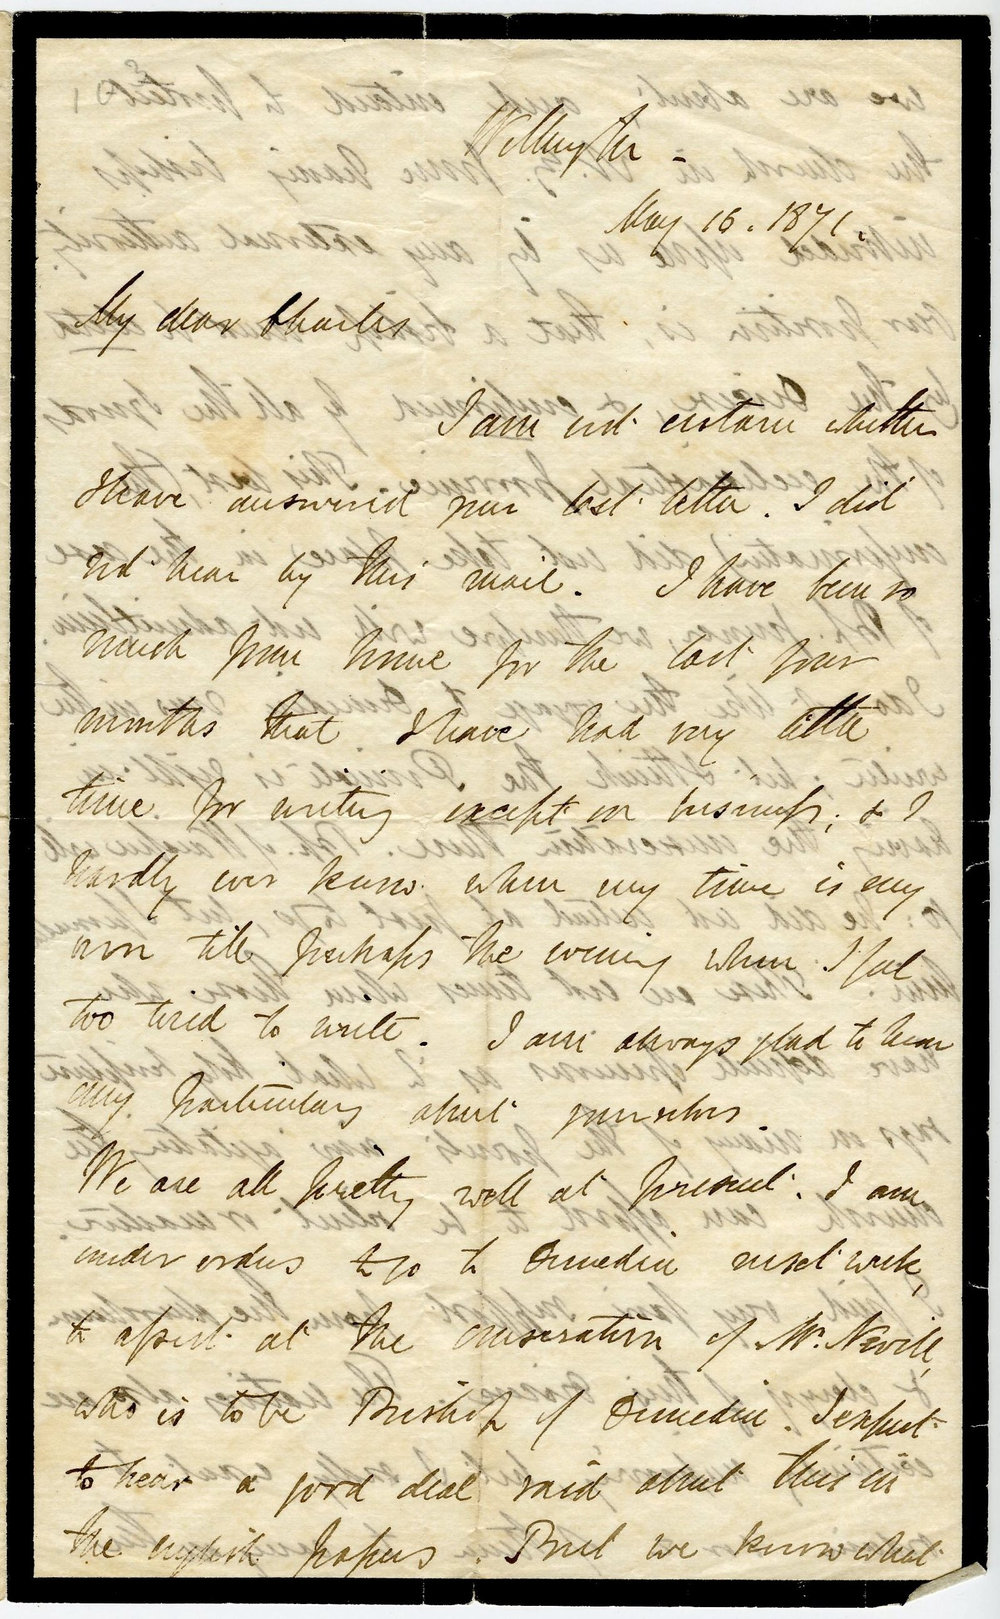 Wellington -
May 16. 1871.
My dear Charles
I am not certain whether
I have answered your last letter. I did
not hear by this mail. I have been so
much from home for the last four
months that I have had very little
time for writing except on business; & I
hardly ever know when my time is my
own till perhaps the evening when I feel
too tired to write. I am always glad to hear
any particulars about yourselves.
We are all pretty well at present. I am
under orders to go to Dunedin next week,
to assist at the consecration of Mr. Nevill,
who is to be Bishop of Dunedin. I expect
to hear a good deal said about this in
the english papers. But we know what